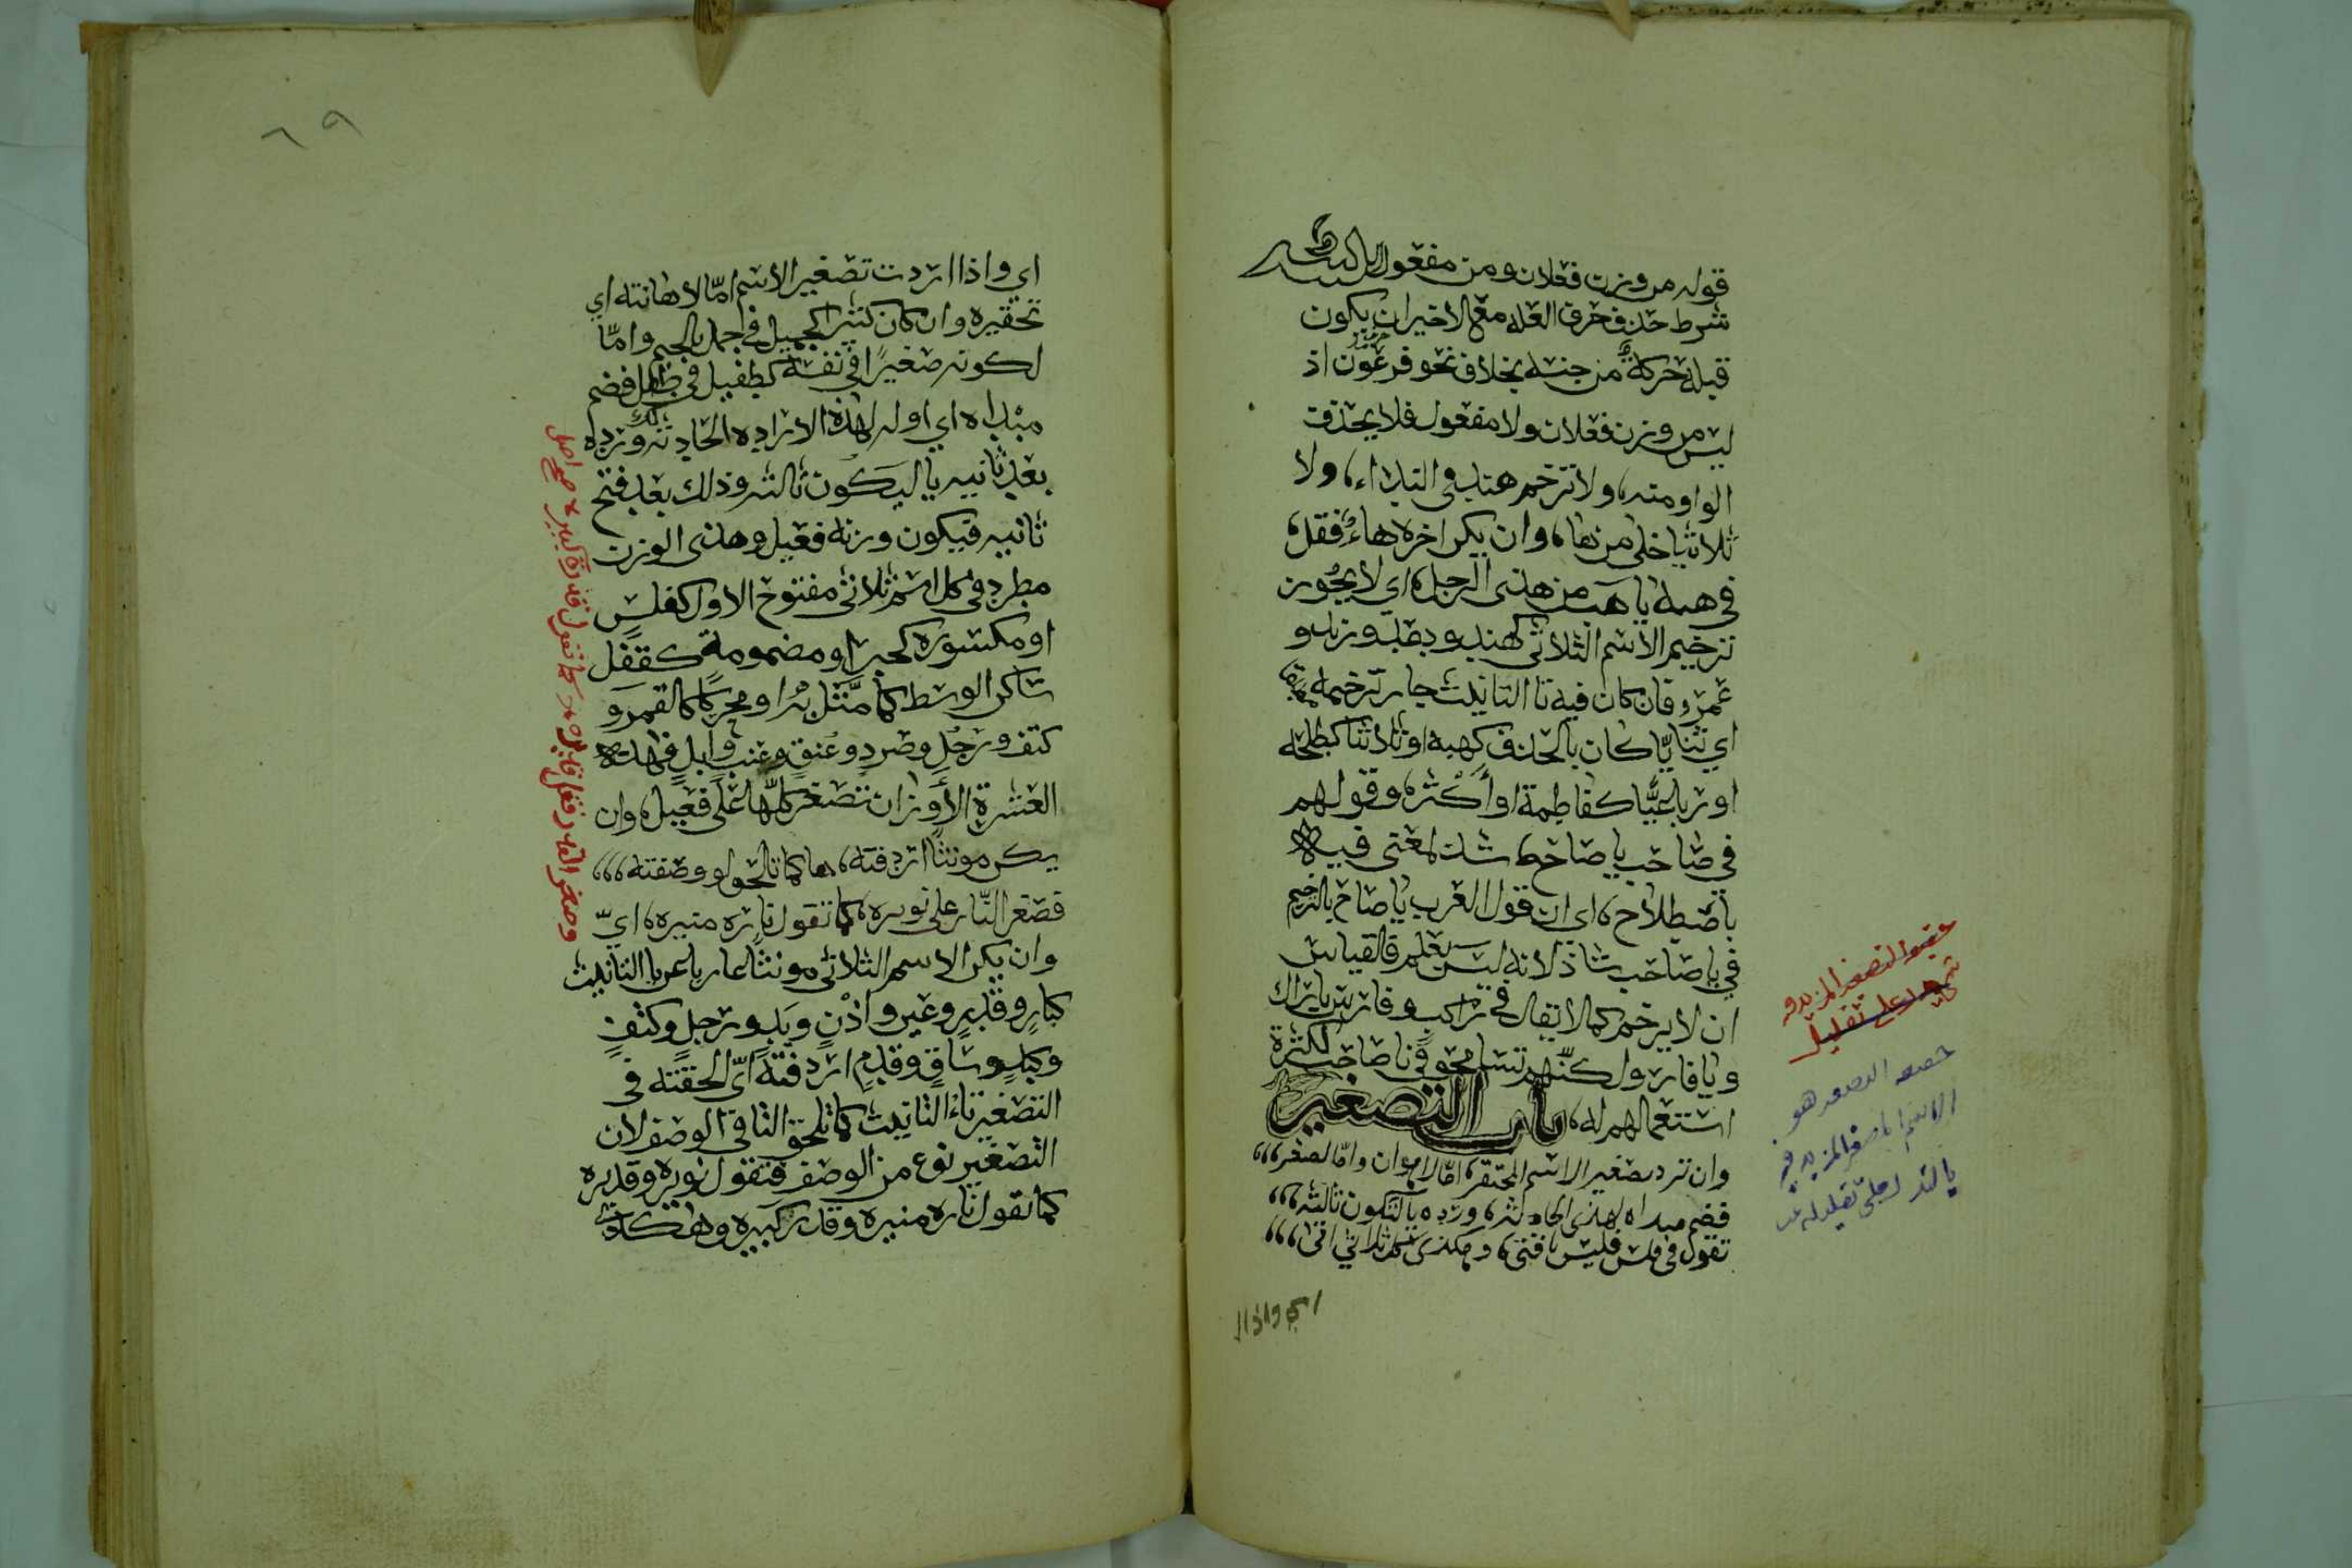 قوله من وزن فعلان ومن مفعول
شرط حذف حرف العله مع الاخير ان يكون
قبله حركة من جنسه بخلاف نحو فرعون اذ
ليس من وزن فعلان ولا مفعول فلا يحذف
الواو منه، ولا ترخم هند في النداء، ولا
ثلاثيا خلى من هاء، وان يكن اخره هاء فقل،
في هبة يا هب من هذى الرجل، اي لا يجوز
ترخيم الاسم الثلاثي كهند ودعد وزيد و
عمرو فان كان فيه تا التانيث جاز ترخيمه
اي ثنايّا كان بالحذف كهبه او ثلاثيا كطلحه
او رباعيّا كفاطمة او أكثر، وقولهم
في صاحب يا صاح شذ لمعنى فيه
باصطلاح، اي ان قول العرب يا صاح بالترخيم
في يا صاحب شاذ لانه ليس بعلم فالقياس
ان لا يرخم كما لا يقال في راكب وفارس يا راك
ويا فار ولكنّهم تسامحو في يا صاحب لكثرة
استعمالهم له، باب التصغير
وان ترد تصغير الاسم المحتقر، امّا لاهوان وامّا لصغر،،،
فضم مبداه لهذى الحادثه، وزده يا لتكون ثالثه،،،
تقول في فلس فليس يا فتى، وهكذى كل ثلاثي اتى،،،
اي واذا ا
حقيقة التصغير المزيد فيه
على تقليل
التصغير هو
الاسم المصغر المزيد فيه
يا لتدل على تقليله
٦٩
اي واذا اردت تصغير الاسم امّا لاهانته اي
تحقيره وان كان كثيرا كجميل في جمل بالجيم وامّا
لكونه صغيرًا في نفسه كطفيل في طفل فضم
مبداه اي اوله لهذه الاراده الحادثه وزده
بعد ثانيه يا ليكون ثالثه وذلك بعد فتح
ثانيه فيكون وزنه فعيل وهذى الوزن
مطرد في كل اسم ثلاثي مفتوح الاول كفلس
او مكسوره كحبر او مضمومة كقفل
ساكن الوسط كما مثّل به او محركا كالقمر و
كتف ورجل وصرد وعنق وعنب وابل فهذه
العشرة الأوزان تصغر كلّها على فعيل، وان
يكن مونثا اردفته، ها كما تلحق لو وصفته،،،
فصغر النّار على نويره، كما تقول ناره منيره، ايّ
وان يكن الاسم الثلاثي مونثا عاريا عن يا التانيث
كنار وقدر وعير واذن ويد ورجل وكتف
وكبد وساق وقدم اردفته ايّ الحقته في
التصغير تاء التانيث كما تلحق التا في الوصف لان
التصغير نوع من الوصف فتقول نويره وقديره
كما تقول ناره منيره وقدر كبيره وهكذى
وصغر القدر فقل قديره كما تقول قدرة كبيره صح اصل